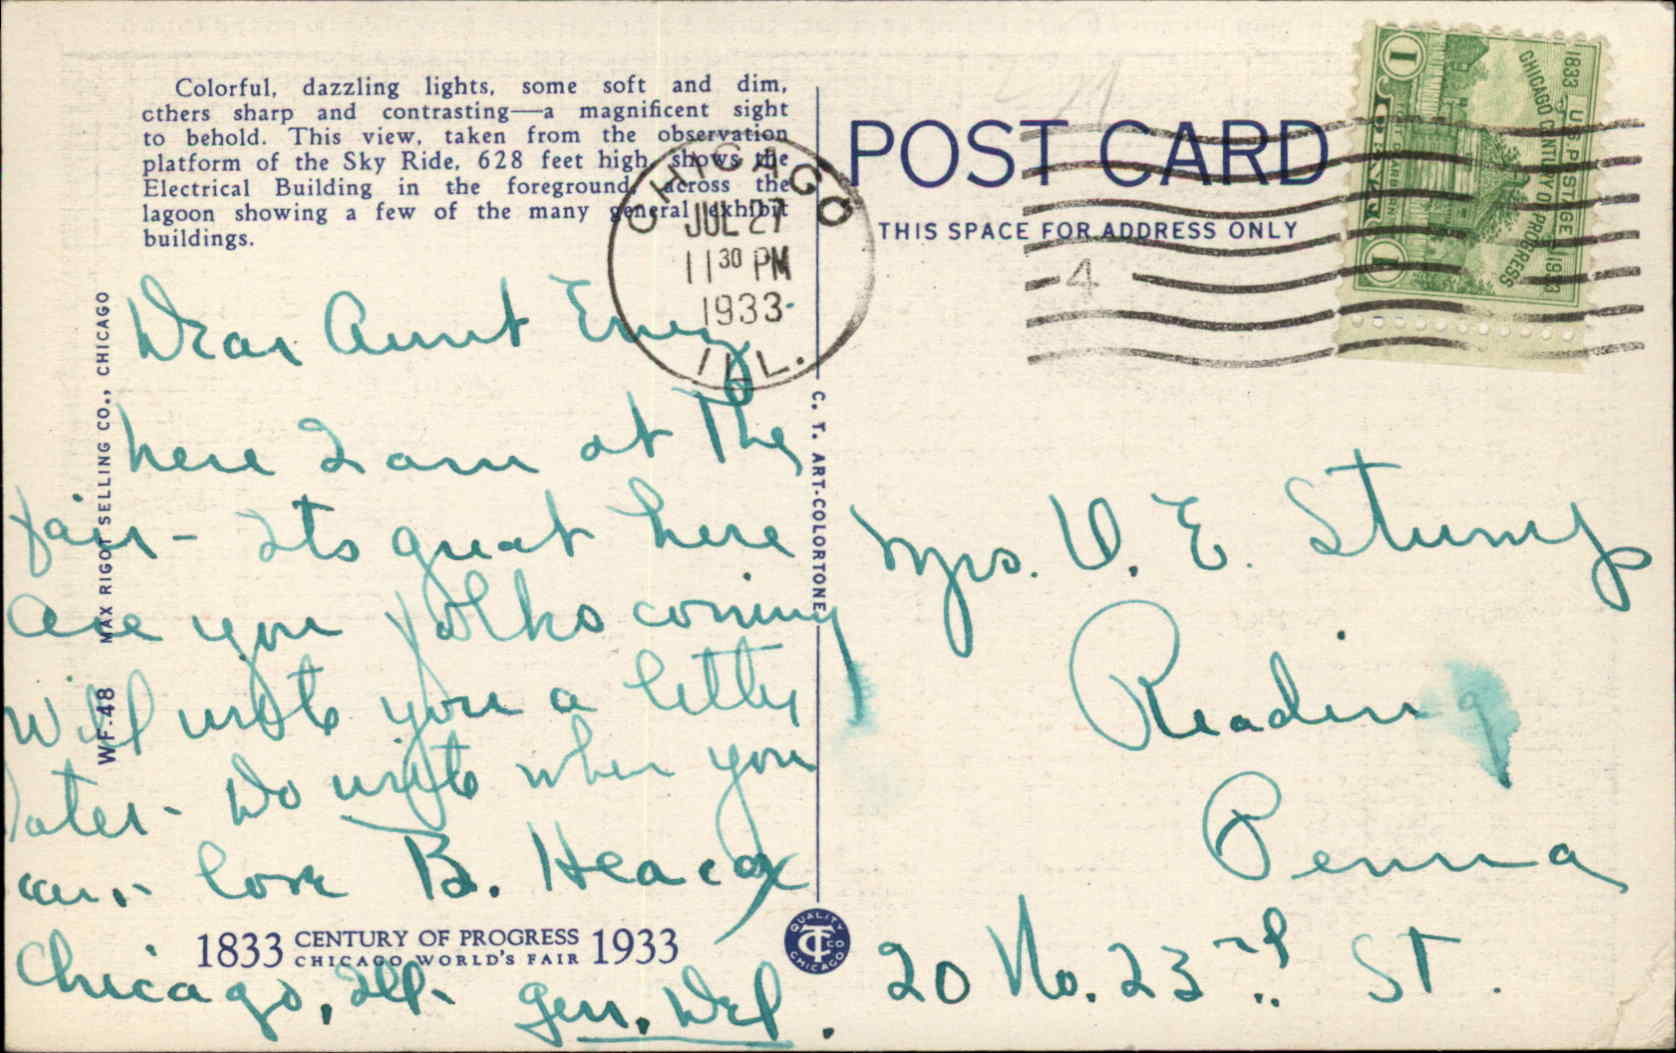 Colorful, dazzling lights, some soft and dim,
others sharp and contrasting—a magnificent sight
to behold. This view, taken from the observation
platform of the Sky Ride, 628 feet high, shows the
Electrical Building in the foreground, across the
lagoon showing a few of the many general exhibit
buildings.
CHICAGO
JUL 27
11 30 PM
1933
ILL.
POST CARD
THIS SPACE FOR ADDRESS ONLY
4
U.S. POSTAGE
1833 1933
CHICAGO CENTURY OF PROGRESS
1 1
WF-48 MAX RIGOT SELLING CO., CHICAGO
C. T. ART-COLORTONE
Dear Aunt
here I am at the
fair - Its great here
are you folks coming
Will write you a letter
later - Do write when you
can - love B.
Chicago, Ill. Gen. Del.
1833 CENTURY OF PROGRESS 1933
CHICAGO WORLD'S FAIR
QUALITY
CT CO
CHICAGO
Mrs. V. E. Stump
Reading
Penna
20 No. 23rd St.